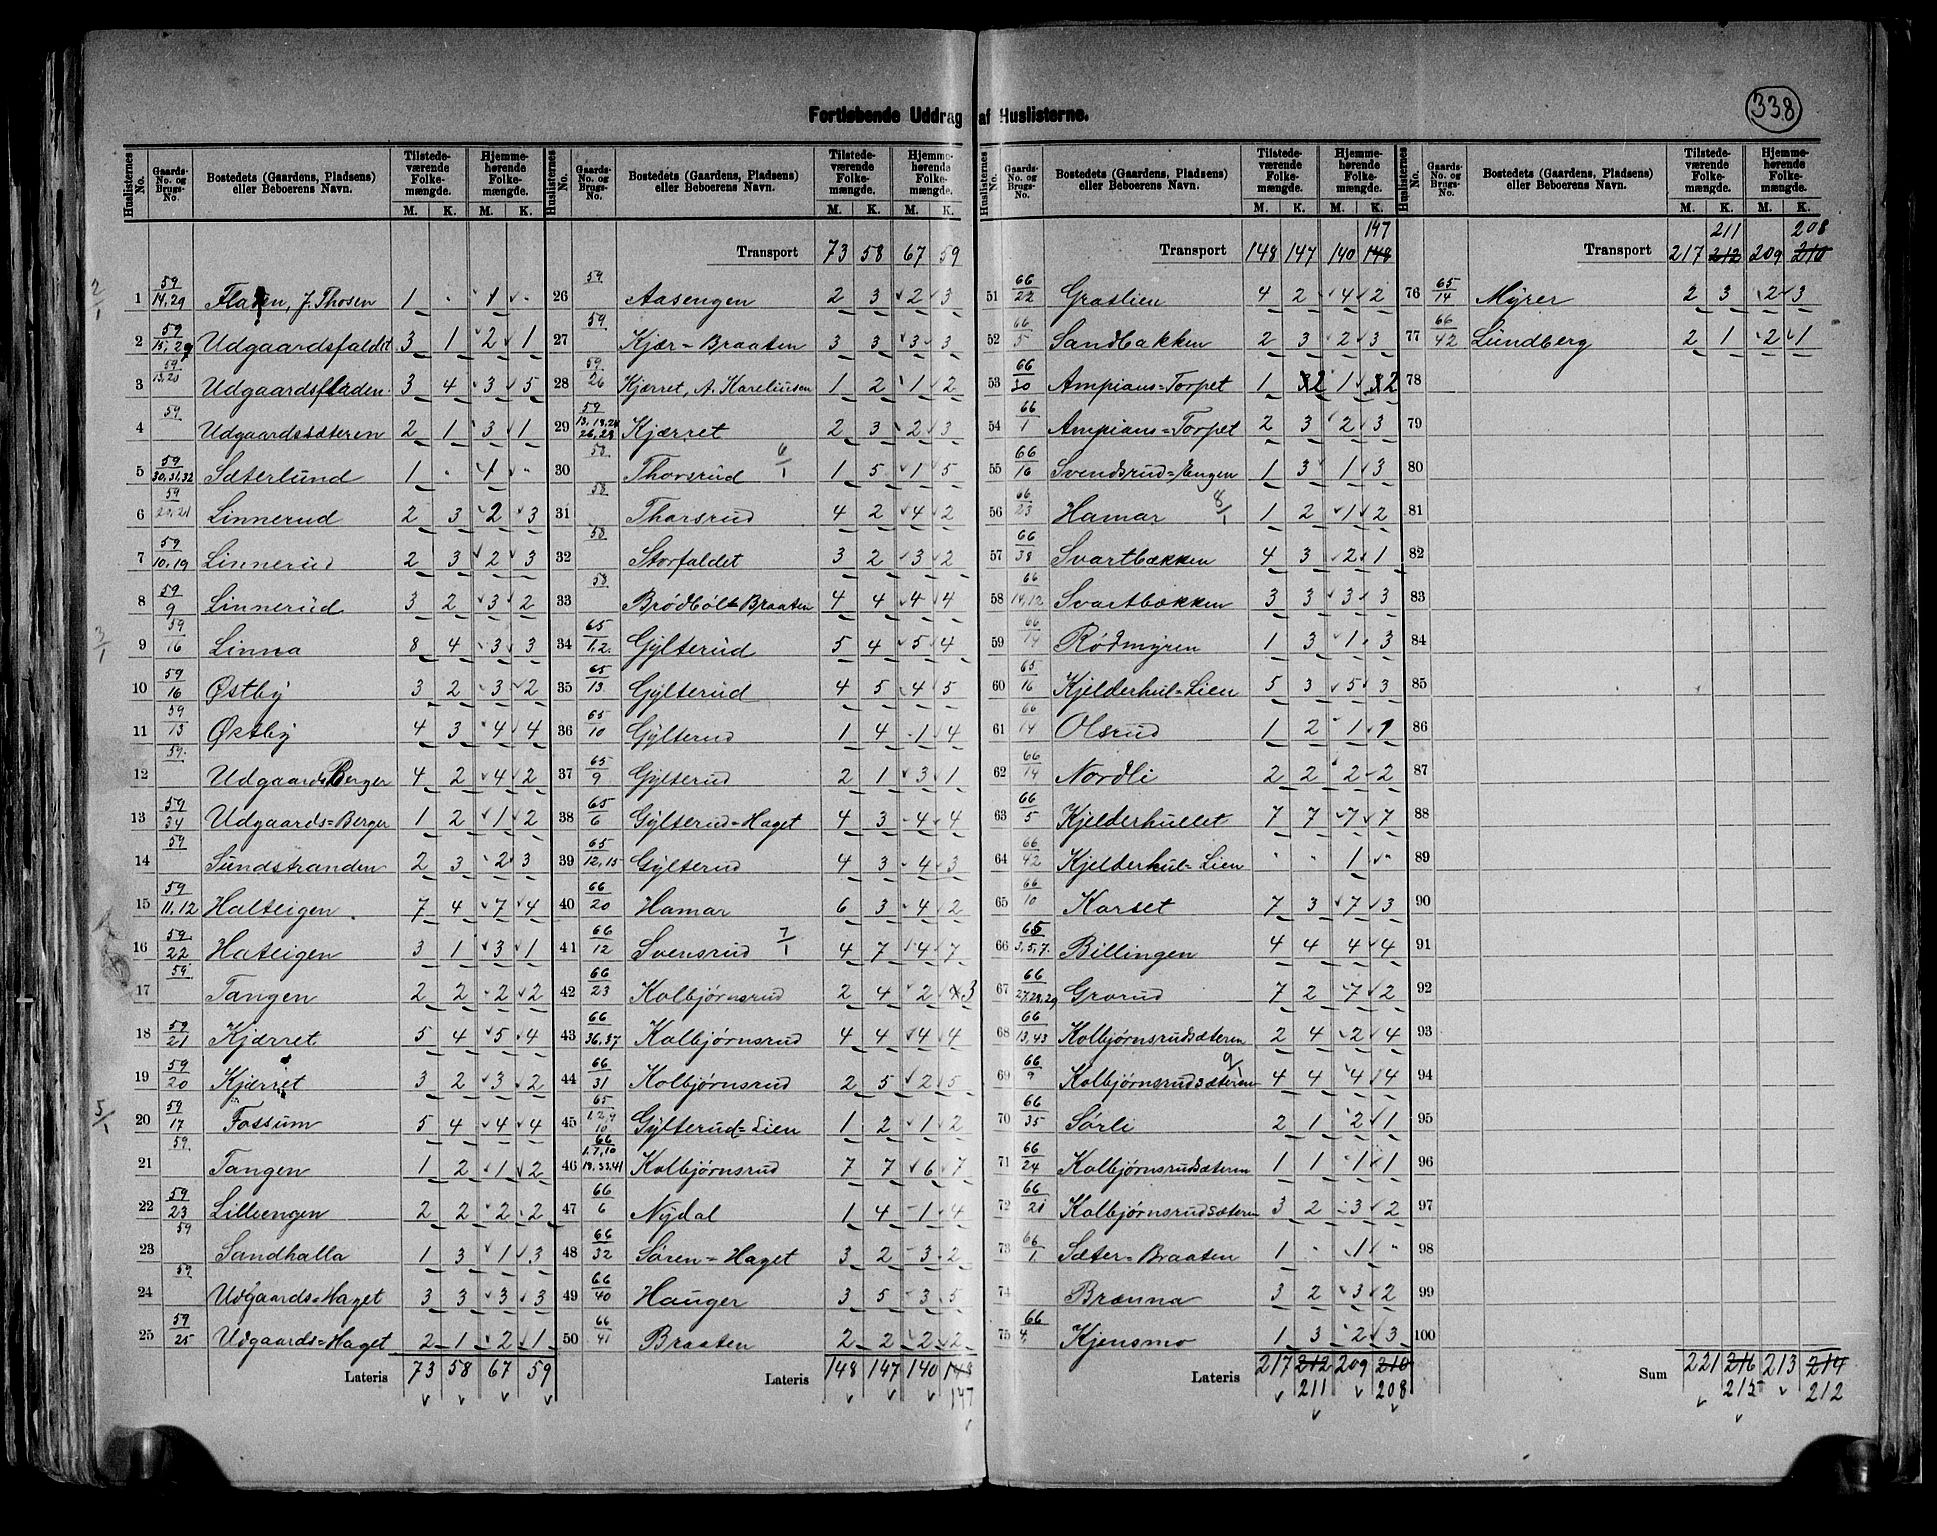 338
Fortløbende Uddrag af Huslisterne.
Huslisternes No. | Gaards-No. og Brugs-No. | Bostedets (Gaardens, Pladsens) eller Beboerens Navn. | Tilstedeværende Folkemængde. M. K. | Hjemmehørende Folkemængde. M. K.
1 59/14,29 Fladen, J. Thosen 1 - 1 -
2 59/15,29 Udgaardsfaldet 3 1 2 1
3 59/13,20 Udgaardsfladen 3 4 3 5
4 59 Udgaardssæteren 2 1 3 1
5 59/30,31,32 Sæterlund 1 - 1 -
6 59 Linnerud 2 3 2 3
7 59/10,19 Linnerud 2 3 2 3
8 59/9 Linnerud 3 2 3 2
9 59/16 Linna 8 4 3 3
10 59/16 Østby 3 2 3 2
11 59/13 Østby 4 3 4 4
12 59 Udgaards Berger 4 2 4 2
13 59/34 Udgaards=Berger 1 2 1 2
14 59 Sundstranden 2 3 2 3
15 59/11,12 Halteigen 7 4 7 4
16 59/22 Hateigen 3 1 3 1
17 59 Tangen 2 2 2 2
18 59/21 Kjærret 5 4 5 4
19 59/20 Kjærret 3 2 3 2
20 59/17 Fossum 5 4 4 4
21 59 Tangen 1 2 1 2
22 59/23 Lilleengen 2 2 2 2
23 59 Sandhalla 1 3 1 3
24 59 Udgaards=Haget 3 3 3 3
25 59/25 Udgaards=Haget 2 1 2 1
Lateris 73 58 67 59
Transport 73 58 67 59
26 59 Aasengen 2 3 2 3
27 59 Kjær=Braaten 3 3 3 3
28 59/26 Kjærret, A. Kareliusen 1 2 1 2
29 59/13,19,24 26,28 Kjærret 2 3 2 3
30 58 Thorsrud 6/1 1 5 1 5
31 58 Thorsrud 4 2 4 2
32 58 Storfaldet 3 2 3 2
33 58 Brødbølt Braaten 4 4 4 4
34 65/1,2. Gylterud 5 4 5 4
35 65/13 Gylterud 4 5 4 5
36 65/10 Gylterud 1 4 1 4
37 65/9 Gylterud 2 1 3 1
38 65/6 Gylterud=Haget 4 3 4 4
39 65/12,15 Gylterud 4 3 4 3
40 66/20 Hamar 6 3 4 2
41 66/12 Svensrud 7/1 4 7 4 7
42 66/23 Kolbjørnsrud 2 4 2 3
43 66/36,37 Kolbjørnsrud 4 4 4 4
44 66/31 Kolbjørnsrud 2 5 2 5
45 65/1,2,9 10 Gylterud=Lien 1 2 1 2
46 66/1,7,10 19,33,41 Kolbjørnsrud 7 7 6 7
47 66/6 Nydal 1 4 1 4
48 66/32 Søren=Haget 3 2 3 2
49 66/40 Hauger 3 5 3 5
50 66/41 Braaten 2 2 2 2
Lateris 148 147 140 148
147
147
Transport 148 147 140 148
51 66/22 Graslien 4 2 4 2
52 66/5 Sandbakken 2 3 2 3
53 66/30 Ampians=Torpet 1 2 1 2
54 66/1 Ampians=Torpet 2 3 2 3
55 66/16 Svendsrud=Engen 1 3 1 3
56 66/23 Hamar 8/1 1 2 1 2
57 66/38 Svartbækken 4 3 2 1
58 66/14,12 Svartbækken 3 3 3 3
59 66/14 Rødmyren 1 3 1 3
60 65/16 Kjelderhul=Lien 5 3 5 3
61 66/14 Olsrud 1 2 1 1
62 66/14 Nordli 2 2 2 2
63 66/5 Kjelderhullet 7 7 7 7
64 66/42 Kjelderhul=Lien - - 1 -
65 66/10 Karset 7 3 7 3
66 65/3,5,7. Billingen 4 4 4 4
67 66/27,28,29 Grorud 7 2 7 2
68 66/13,43 Kolbjørnsrudsæteren 2 4 2 4
69 66/9 Kolbjørnsrudsæteren 9/1 4 4 4 4
70 66/35 Sørli 2 1 2 1
71 66/24 Kolbjørnsrudsæteren 1 1 1 1
72 66/21 Kolbjørnsrudsæteren 3 2 3 2
73 66/1 Sæter=Braaten 1 - 1 -
74 Brænna 3 2 3 2
75 66/4 Kjensmo 1 3 2 3
Lateris 217 212 209 210
211 208
211 208
Transport 217 212 209 210
76 65/14 Myrer 2 3 2 3
77 66/42 Lundberg 2 1 2 1
78
79
80
81
82
83
84
85
86
87
88
89
90
91
92
93
94
95
96
97
98
99
100
Sum 221 216 213 214
215 212
2/1
3/1
5/1